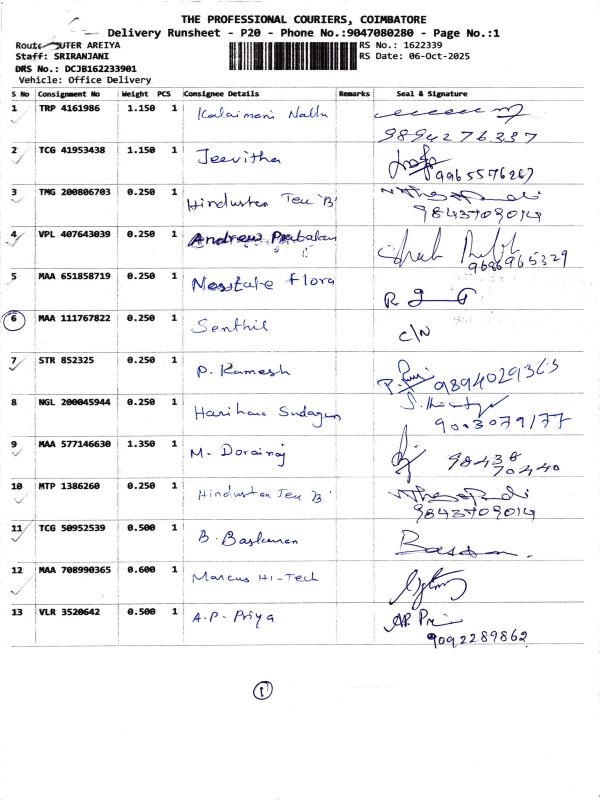 THE PROFESSIONAL COURIERS, COIMBATORE
Delivery Runsheet - P20 - Phone No.:9047080280 - Page No.:1
Route OUTER AREIYA RS No.: 1622339
Staff: SRIRANJANI RS Date: 06-Oct-2025
DRS No.: DCJB162233901
Vehicle: Office Delivery
S No Consignment No Weight PCS Consignee Details Remarks Seal & Signature
1 TRP 4161986 1.150 1 Kalaimani Nallu
9894276337
2 TCG 41953438 1.150 1 Jeevitha
9965576267
3 TMG 200806703 0.250 1 Hindustan Tex 'B'
9843709014
4 VPL 407643039 0.250 1 Andrew Prabakan
9686965329
5 MAA 651858719 0.250 1 Flora
6 MAA 111767822 0.250 1 Senthil
C/N
7 STR 852325 0.250 1 P. Ramesh
9894029363
8 NGL 200045944 0.250 1 Harihara
9003079177
9 MAA 577146630 1.350 1 M. Dorairaj
98438
70440
10 MTP 1386260 0.250 1 Hindustan Tex 'B'
9843709014
11 TCG 50952539 0.500 1 B. Baskaran
12 MAA 708990365 0.600 1 Marcus Hi-Tech
13 VLR 3520642 0.500 1 A.P. Priya
A.P. Pri
9092289862
1